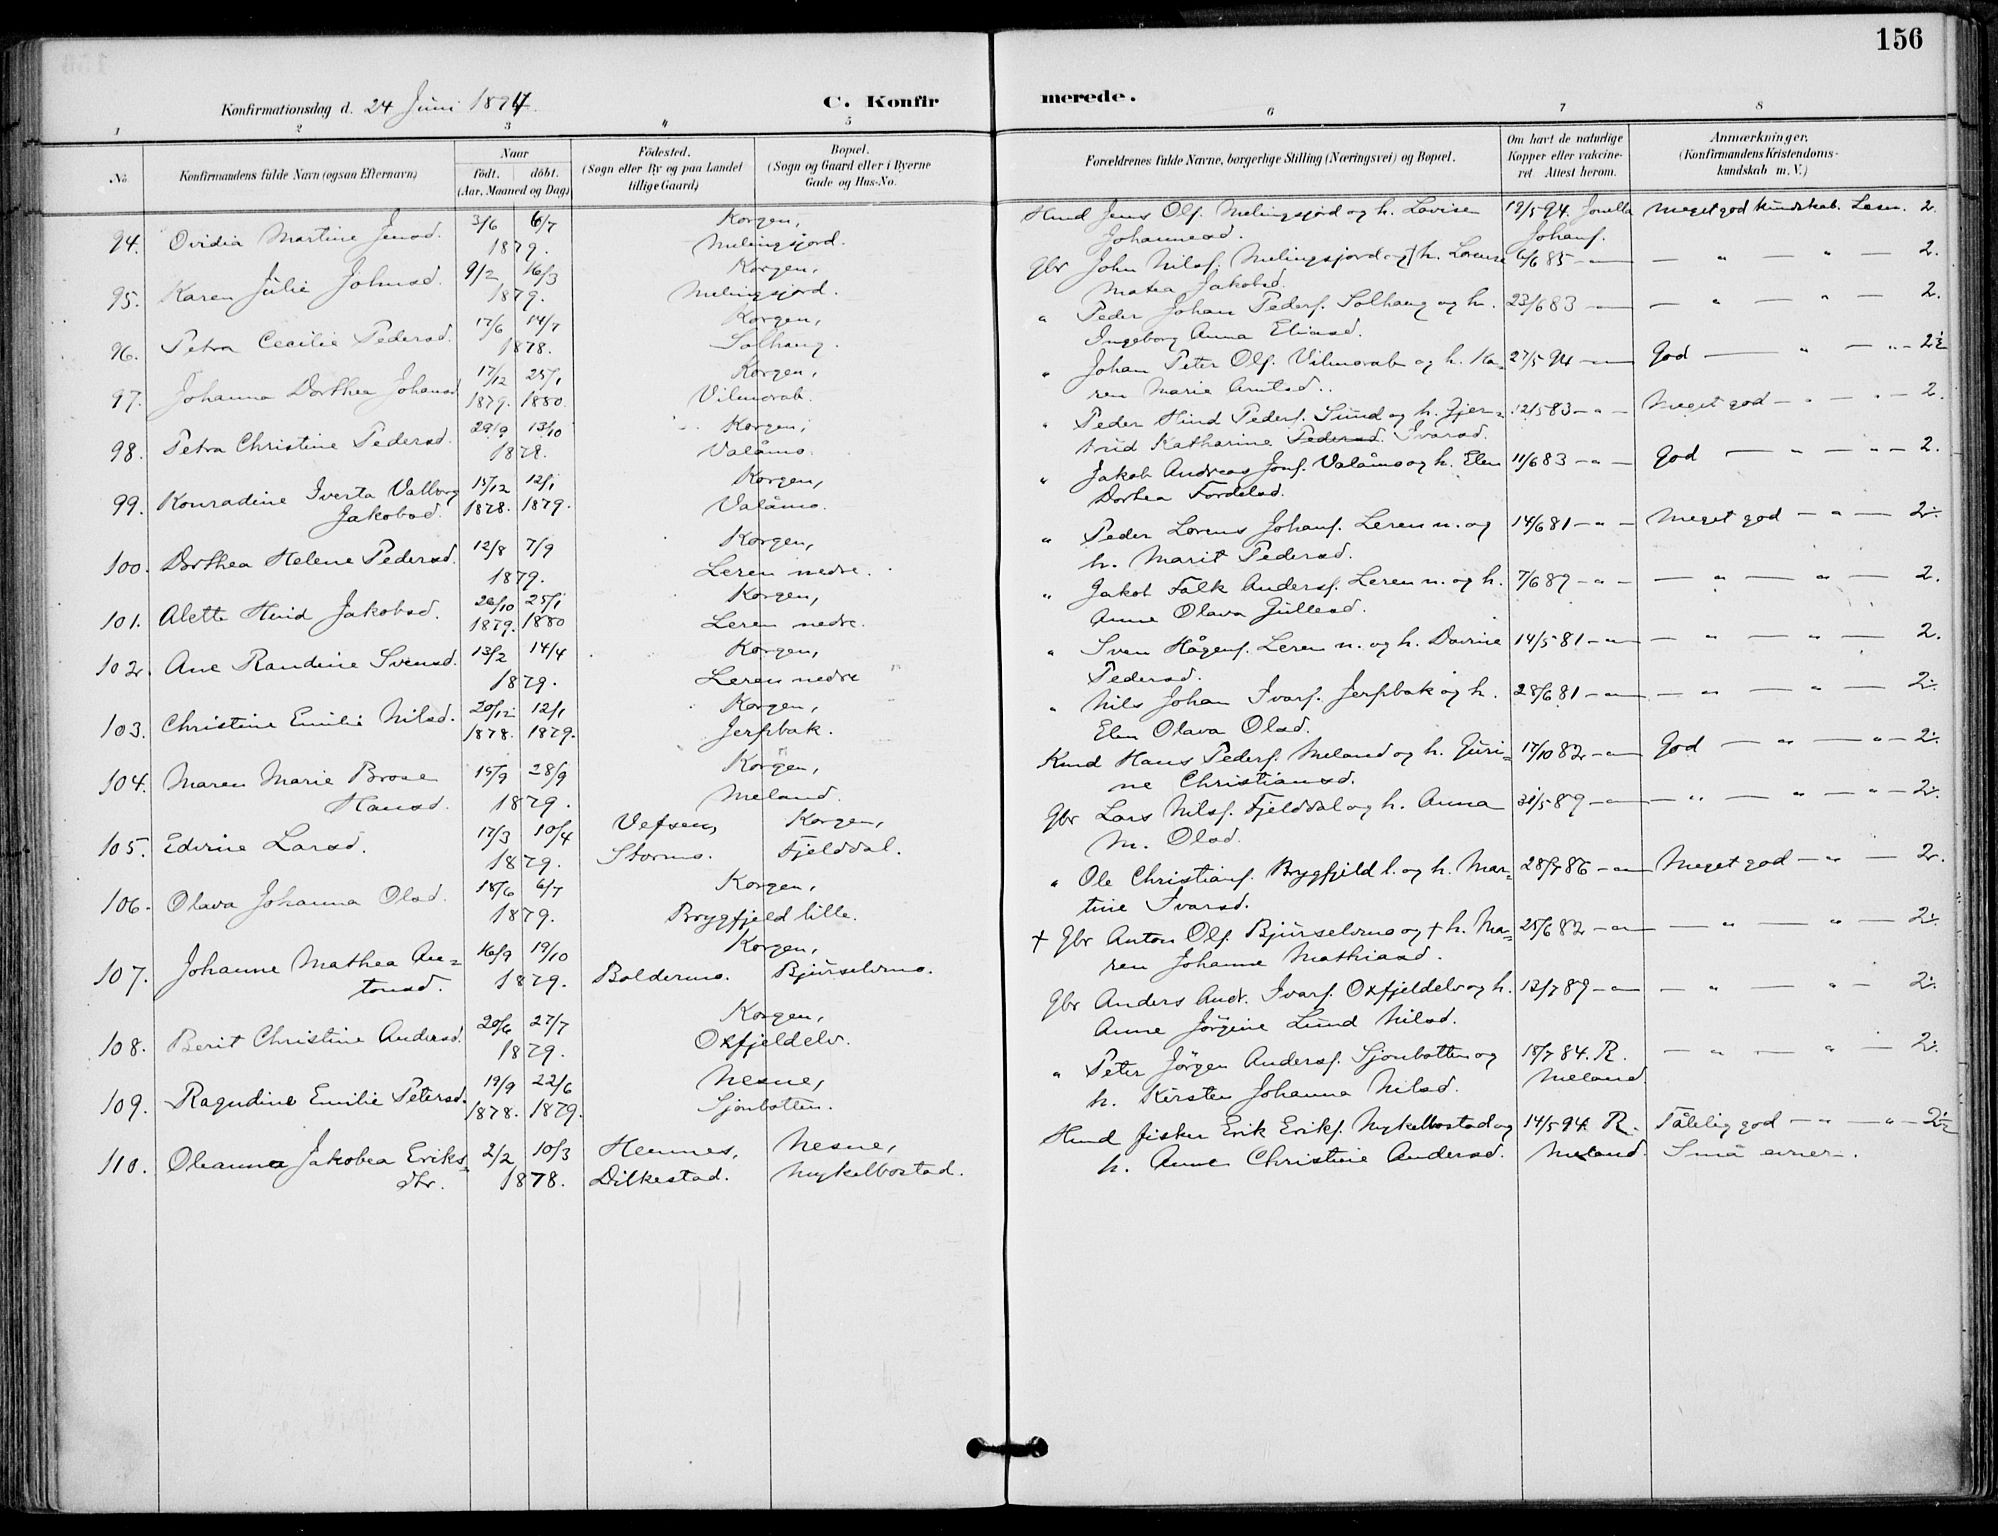 156
Konfirmationsdag d. 24 Juni 1894.
C. Konfirmerede.
1 2 3 4 5 6 7 8
No.
Konfirmandens fulde Navn (ogsaa Efternavn)
Naar
født. døbt.
(Aar, Maaned og Dag)
Födested.
(Sogn eller By og paa Landet
tillige Gaard)
Bopæl.
(Sogn og Gaard eller i Byerne
Gade og Hus-No.
Forældrenes fulde Navne, borgerlige Stilling (Næringsvei) og Bopæl.
Om havt de naturlige
Kopper eller vakcine-
ret. Attest herom.
Anmærkninger.
(Konfirmandens Kristendoms-
kundskab m. V.)
94. Ovidia Martine Jensd. 3/6 6/7 Korgen, Hmd Jens Olf. Melingsjord og h. Lovise 19/5 94. Jonella Meget god Kundskab. Læsn. 2.
1879. Melingsjord. Johannesd. Johanf.
95. Karen Julie Johnsd. 9/2 16/3 Korgen, Gbr John Nilsf. Melingsjord og h. Lorense 6/6 85 — " — — " — " — 2.
1879. Melingsjord. Matea Jakobsd.
96. Petra Cecilie Pedersd. 17/6 14/7 Korgen, " Peder Johan Pedersf. Solhaug og h. 23/6 83 — " — — " — " — 2.
1878. Solhaug. Ingeborg Anna Eliasd.
97. Johanna Dorthea Johansd. 17/12 25/1 Korgen, " Johan Peter Olf. Vilmorab og h. Ka- 27/5 94 — " — God — " — " — 2½
1879. 1880. Vilmorab. ren Marie Arntsd.
98. Petra Christine Pedersd. 29/9 13/10 Korgen, " Peder Hind Pedersf. Sund og h. Gjer- 12/5 83 — " — Meget god — " — " — 2.
1878. Valåmo. trud Katharina Pedersd. Ivarsd.
99. Konradine Iverta Valborg 15/12 12/1 Korgen, " Jakob Andreas Jonf. Valåmo og h. Elen 11/6 83 — " — God — " — " — 2.
Jakobsd. 1878. 1879. Valåmo. Dorthea Fordelsd.
100. Dorthea Helene Pedersd. 12/8 7/9 Korgen, " Peder Lorens Johanf. Leren n. og 14/6 81 — " — Meget god — " — 2.
1879. Leren nedre. h. Marit Pedersd.
101. Alette Hind Jakobsd. 26/10 25/1 Korgen, " Jakob Falk Andersf. Leren n. og h. 7/6 87 — " — — " — " — 2.
1879. 1880 Leren nedre. Anne Olava Gullesd.
102. Ane Randine Svensd. 13/2 14/4 Korgen, " Sven Hågenf. Leren n. og h. Dorine 14/5 81 — " — — " — " — 2.
1879. Leren nedre Pedersd.
103. Christine Emilie Nilsd. 20/12 12/1 Korgen, " Nils Johan Ivarf. Jerpbak og h. 28/6 81 — " — — " — " — 2.
1878. 1879. Jerpbak. Elen Olava Olsd.
104. Maren Marie Brose 15/9 28/9 Korgen, Hmd Hans Pedersf. Meland og h. Guri- 17/10 82 — " — God — " — " — 2.
Hansd. 1879. Meland. ne Christiansd.
105. Edvine Larsd. 17/3 10/4 Vefsen, Korgen, Gbr Lars Nilsf. Fjelddal og h. Anna 31/5 89 — " — — " — " — " — 2.
1879. Stormo. Fjelddal. M. Olsd.
106. Olava Johanna Olsd. 18/6 6/7 Korgen, " Ole Christianf. Brygfjeld l. og h. Mar- 28/7 86 — " — Meget god — " — 2.
1879. Brygfjeld lille. tine Ivarsd.
107. Johanne Mathea An- 16/9 19/10 Korgen, † Gbr Anton Olf. Bjurselvmo og † h. Ma- 25/6 82 — " — — " — " — 2.
tonsd. 1879. Boldermo. Bjurselvmo. ren Johanne Mathiasd.
108. Berit Christine Andersd. 20/6 27/7 Korgen, Gbr Anders Andr. Ivarf. Oxfjeldelv og h. 12/7 89 — " — — " — " — 2.
1879. Oxfjeldelv. Anne Jørgine Lund Nilsd.
109. Ragndine Emilie Petersd. 19/9 22/6 Nesne, " Peter Jörgen Andersf. Sjonbotten og 18/7 84. R. — " — " — 2.
1878. 1879. Sjonbotten. h. Kirsten Johanna Nilsd. Meland
110. Oleanna Jakobea Eriks- 2/2 10/3 Hemnes, Nesne, Hmd fisker Erik Erikf. Nykelbostad og 14/5 94. R. Tålelig god — " — " — 2½
dtr. 1878. Dilkestad. Nykelbostad. h. Anne Christine Andersd. Meland. Små evner.